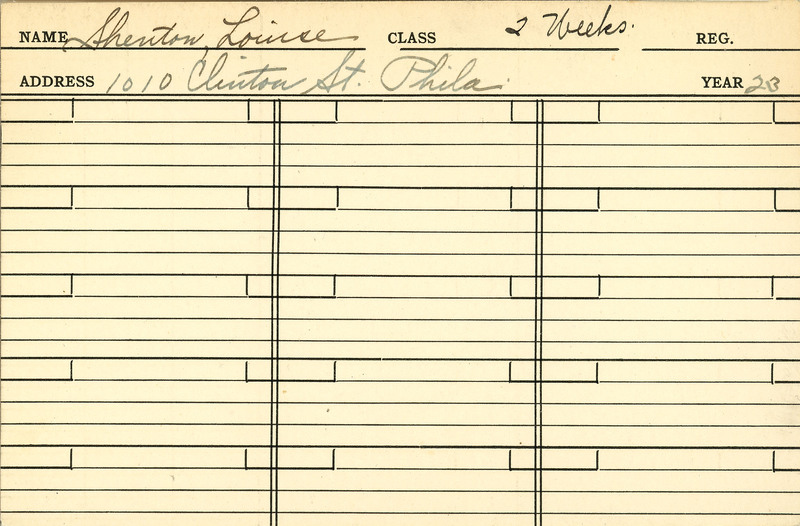 NAME Shenton, Louise CLASS 2 Weeks. REG.
ADDRESS 1010 Clinton St. Phila. YEAR 23